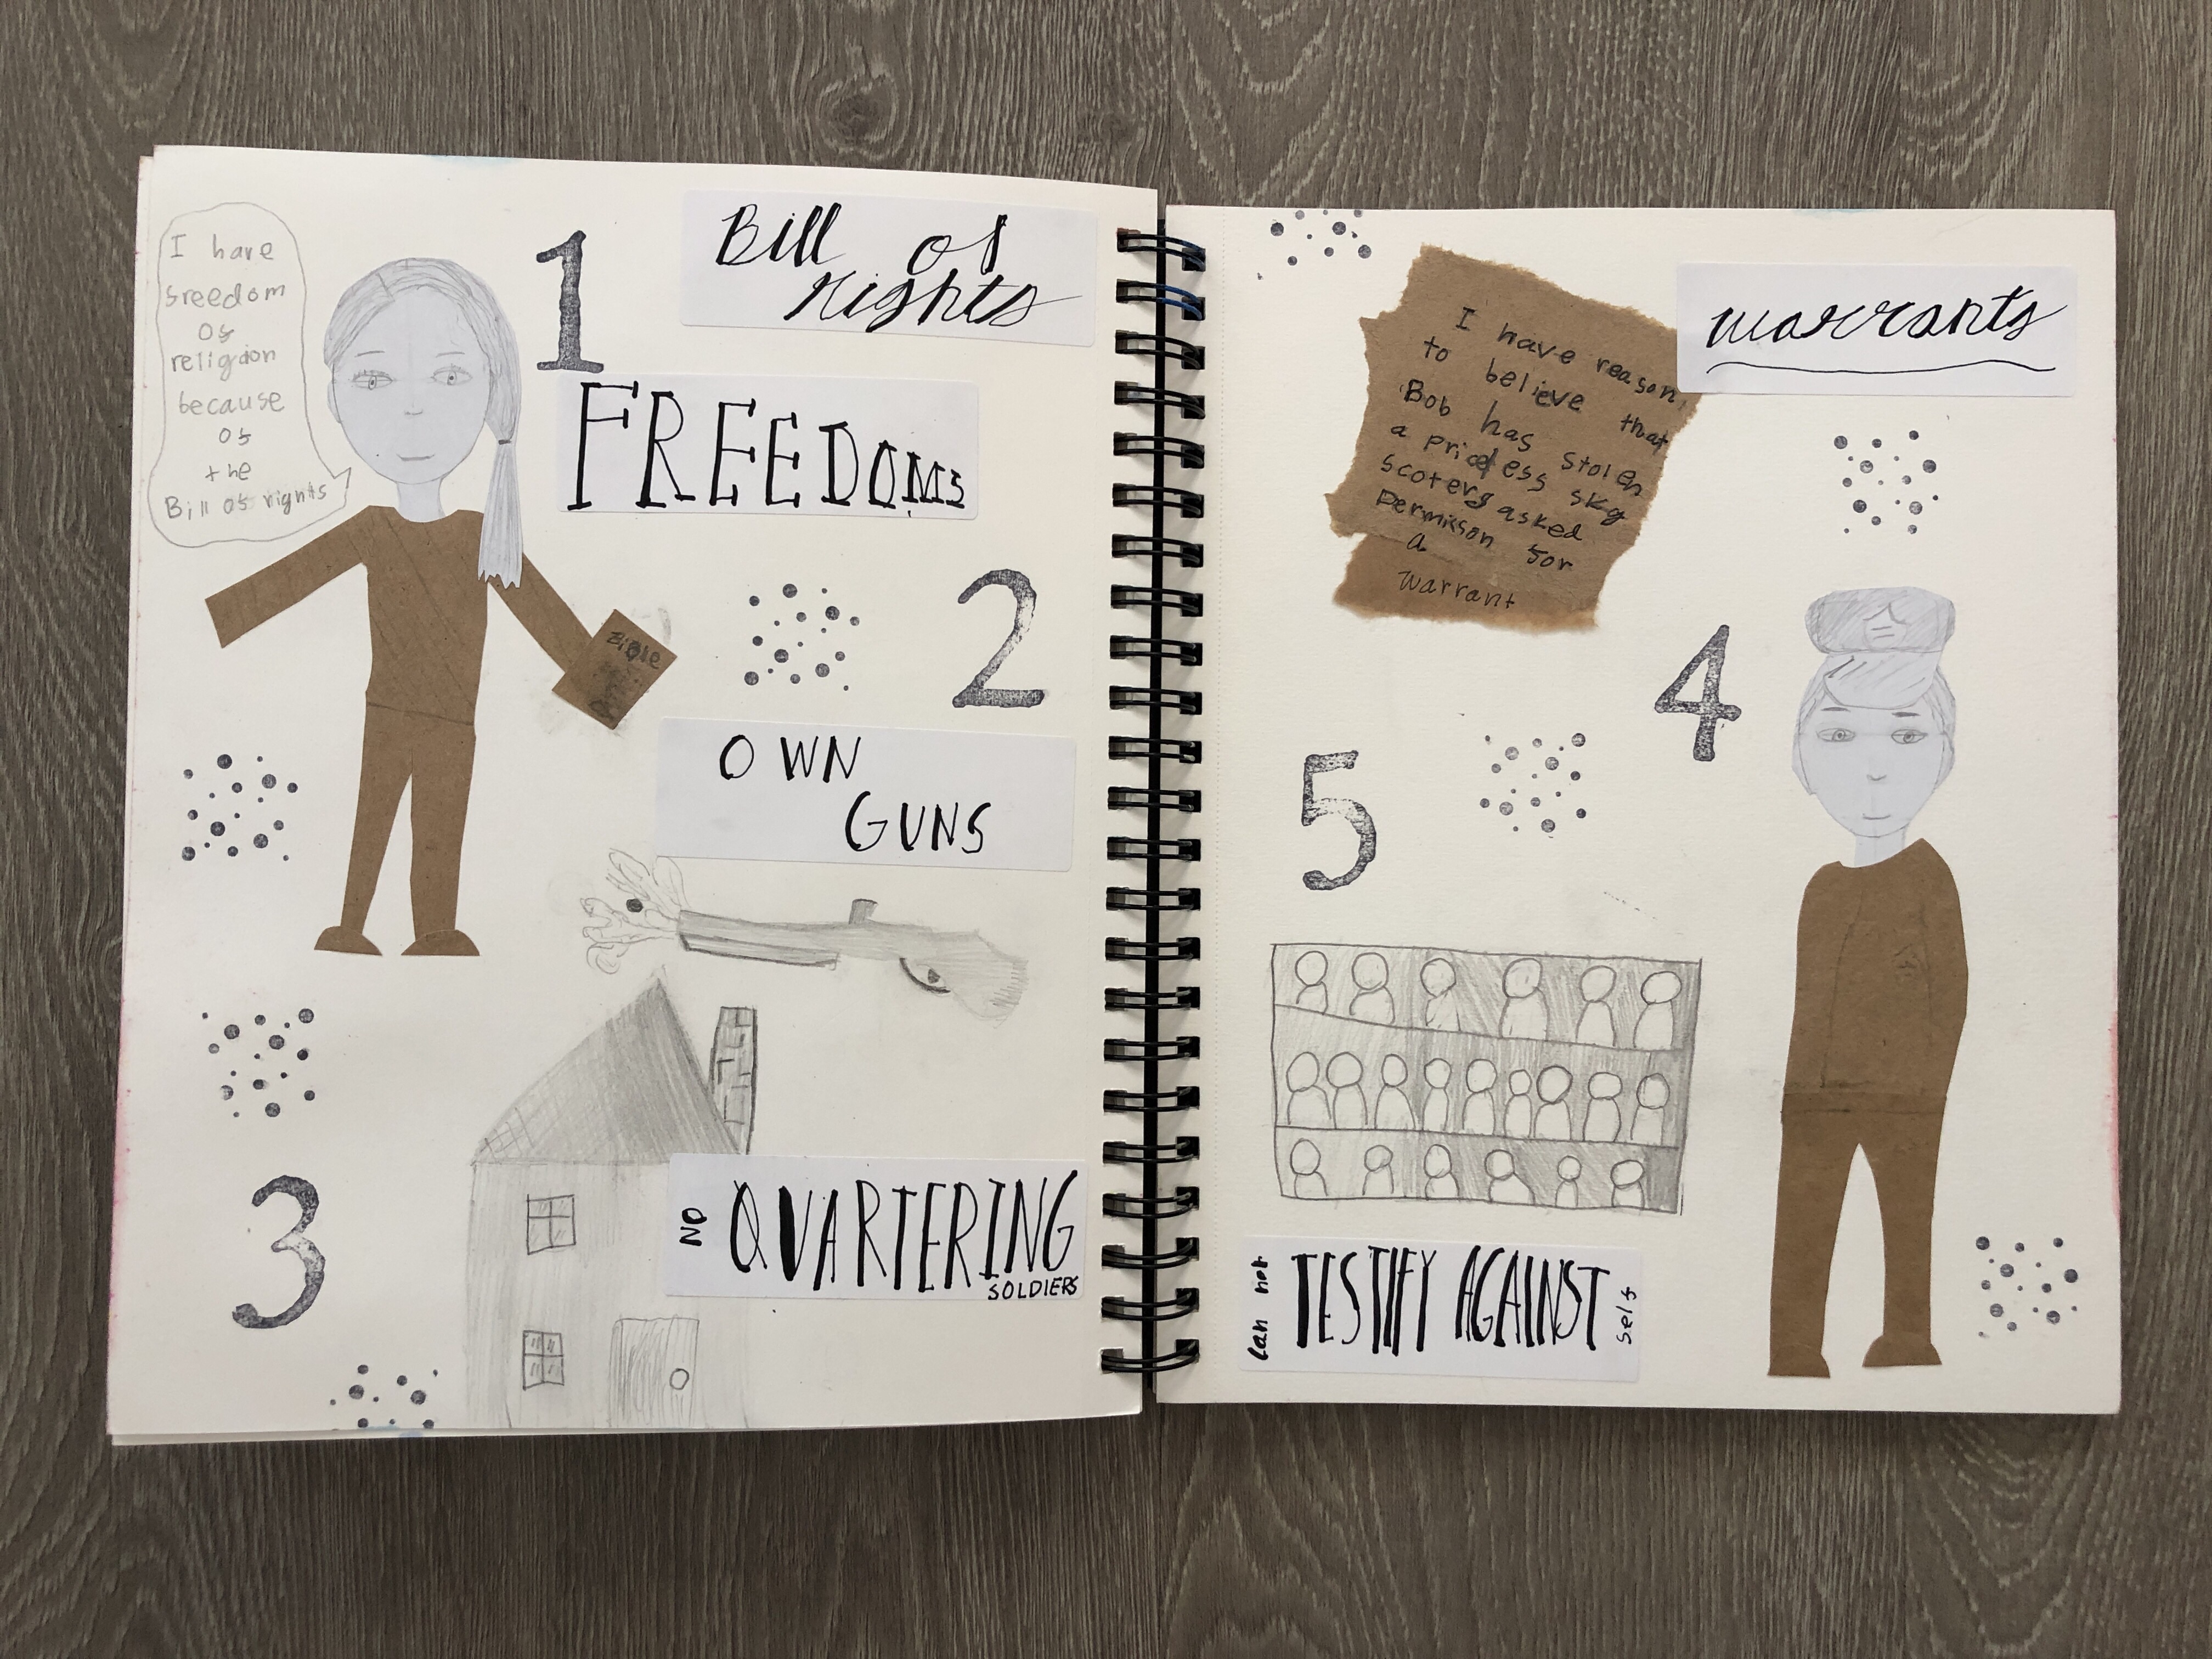 I have
freedom
of
religion
because
of
the
Bill of rights
1
Bill of
rights
FREEDOMS
Bible
2
OWN
GUNS
3
NO
QUARTERING
SOLDIERS
I have reason
to believe that
Bob has stolen
a priceless sky
scoter
asked
permisson for
a
warrant
warrants
4
5
Can not
TESTIFY AGAINST
self